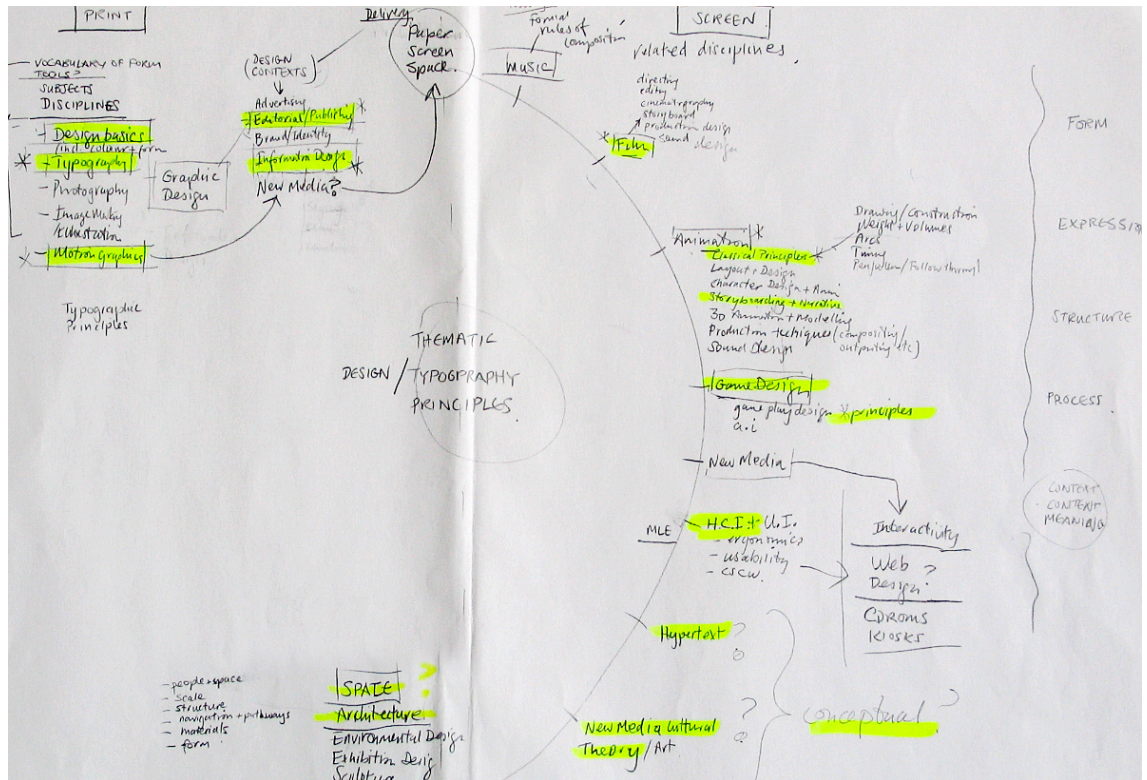 PRINT
VOCABULARY OF FORM
TOOLS?
SUBJECTS
DISCIPLINES
Design basics
(incl. colour + form
* Typography
- Photography
- Image Making
/illustration
* Motion graphics
Typographic
Principles
Graphic
Design
Delivery
(DESIGN
CONTEXTS)
Advertising
Editorial/Publishing *
Brand/Identity
Information Design *
New Media?
Paper
Screen
Space.
formal
rules of
composition
music
SCREEN
related disciplines.
directing
editing
cinematography
storyboard
production design
sound design
* Film
Animation *
Classical Principles *
Layout + Design
Character Design + Anim
Storyboarding + Narrative
3D Animation + Modelling
Production techniques (compositing/
outputing etc)
Sound Design
Drawing/Construction
Weight + Volumes
Arcs
Timing
Pendulum/Follow through
Game Design
game play design * principles
a.i
New Media
MLE
H.C.I + U.I.
- ergonomics
- usability
- CSCW.
Interactivity
Web ?
Design
CDROMS
KIOSKS
Hypertext ?
New Media Cultural ?
Theory / Art
conceptual ?
THEMATIC
DESIGN / TYPOGRPHY
PRINCIPLES.
- people + space
- scale
- structure
- navigation + pathways
- materials
- form
SPACE ?
Architecture
Environmental Design
Exhibition Design
Sculpture
FORM
EXPRESSION
STRUCTURE
PROCESS
CONTENT
CONTEXT
MEANING